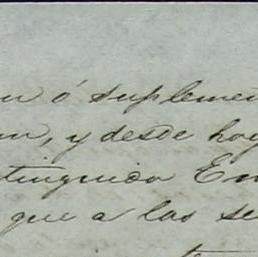 ó supleme
, y desde hoy
tinguida En
que a las se